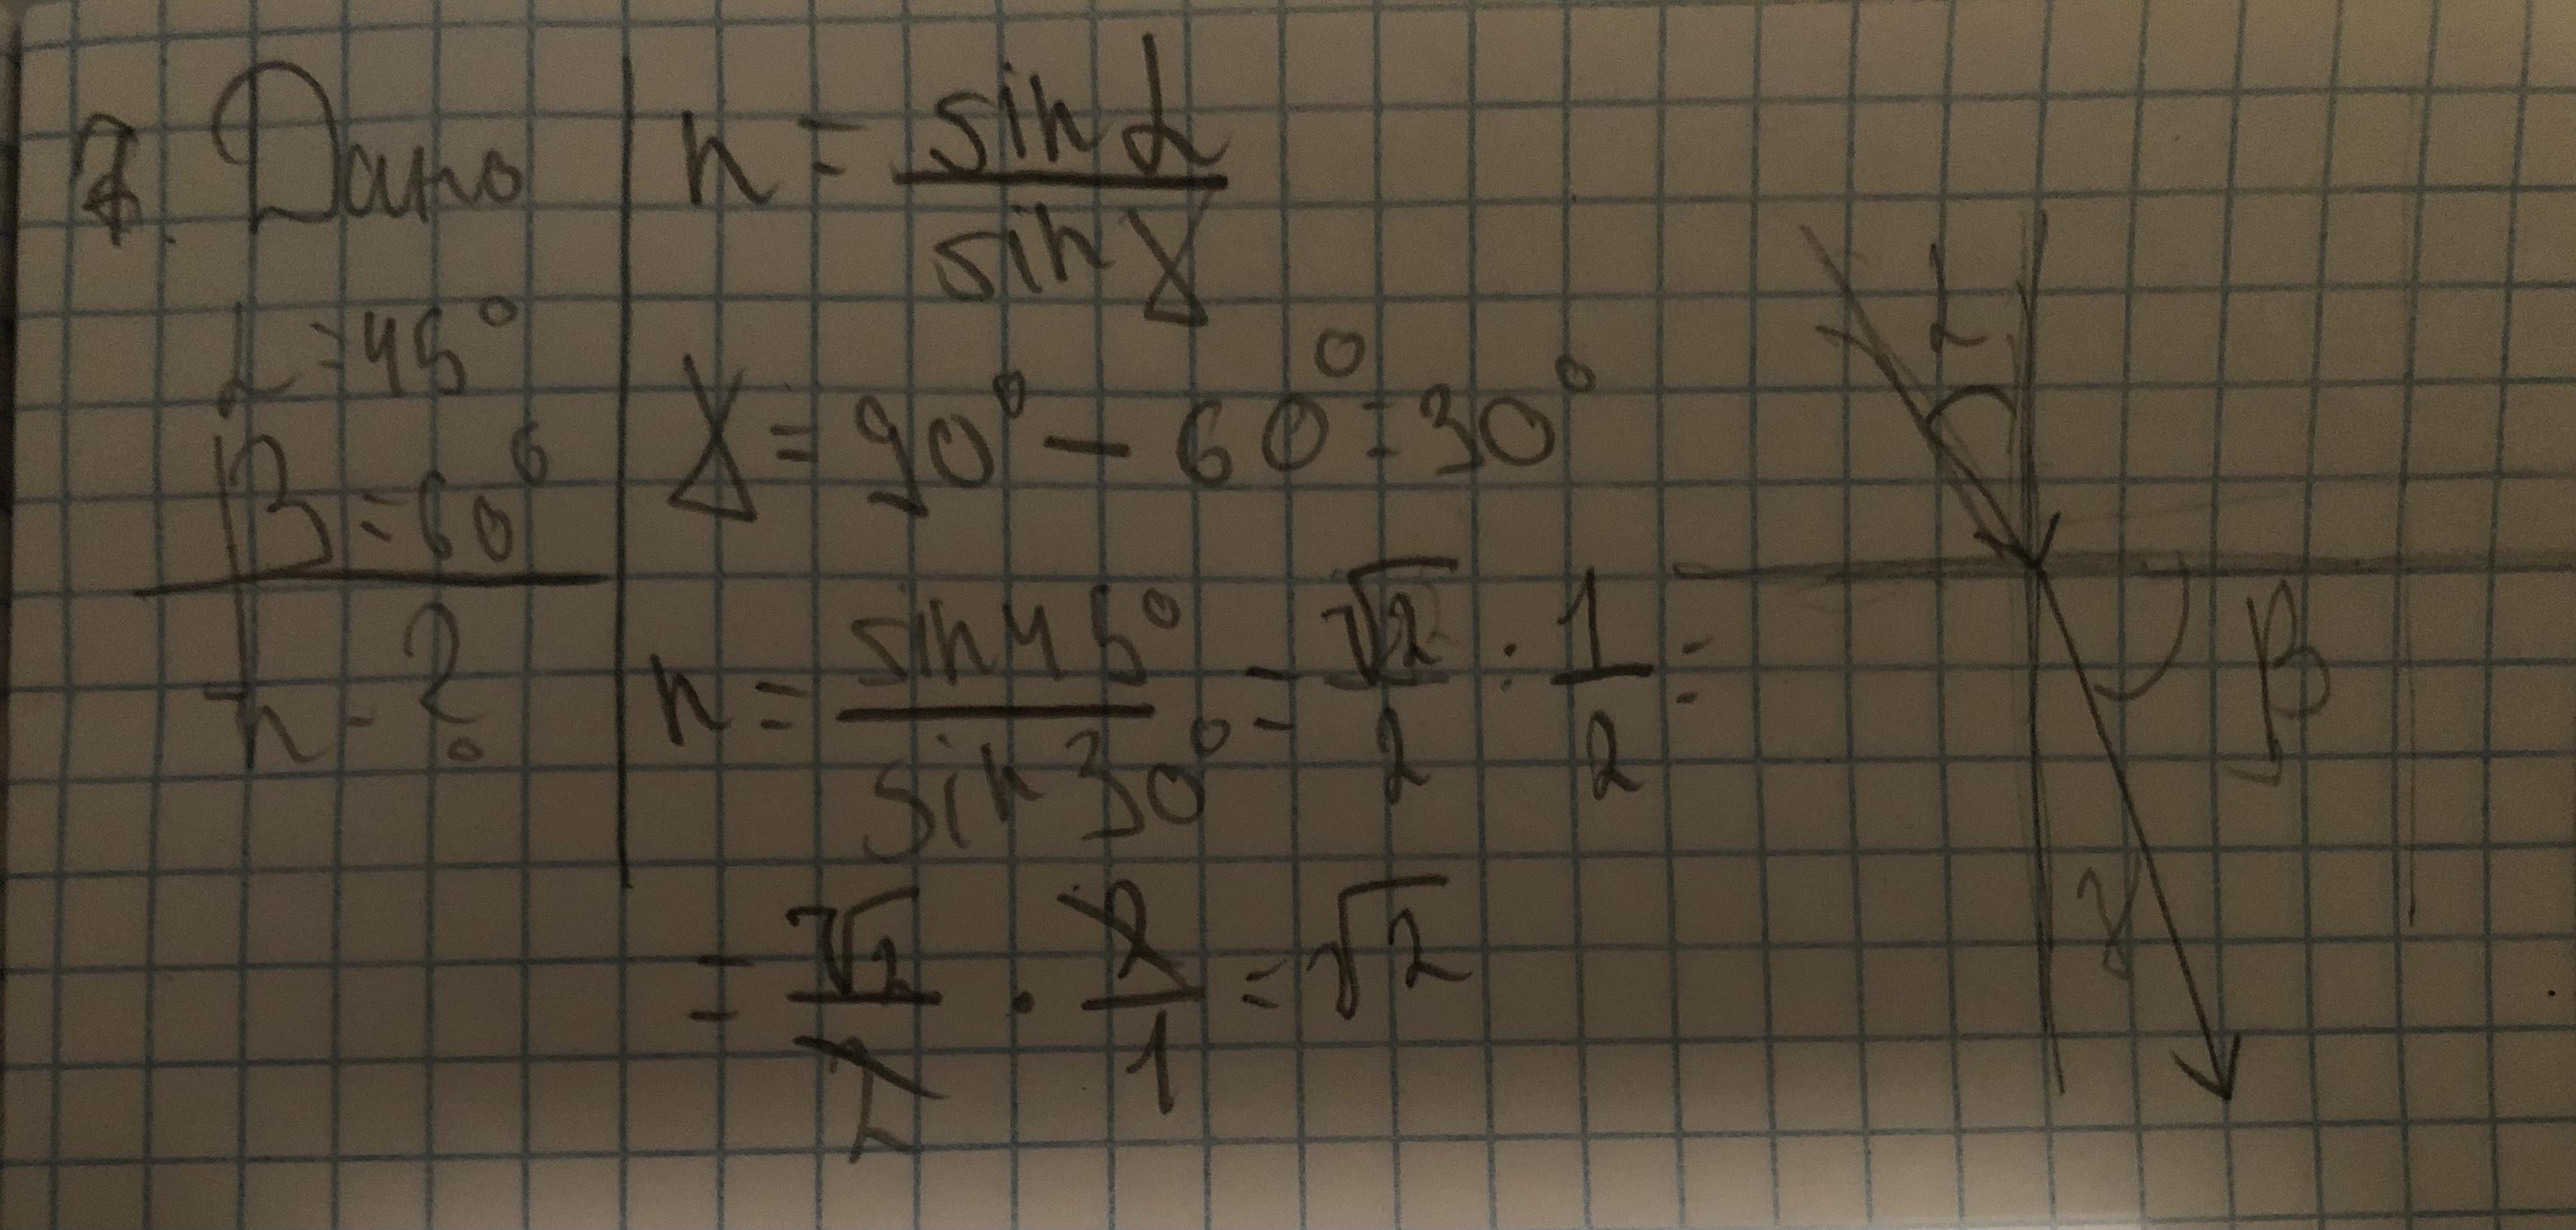 Дано
α = 45°
β = 60°
n - ?
n = sin α / sin γ
γ = 90° - 60° = 30°
n = sin 45° / sin 30° = √2 / 2 : 1 / 2 =
= √2 / 2 · 2 / 1 = √2
α
β
γ